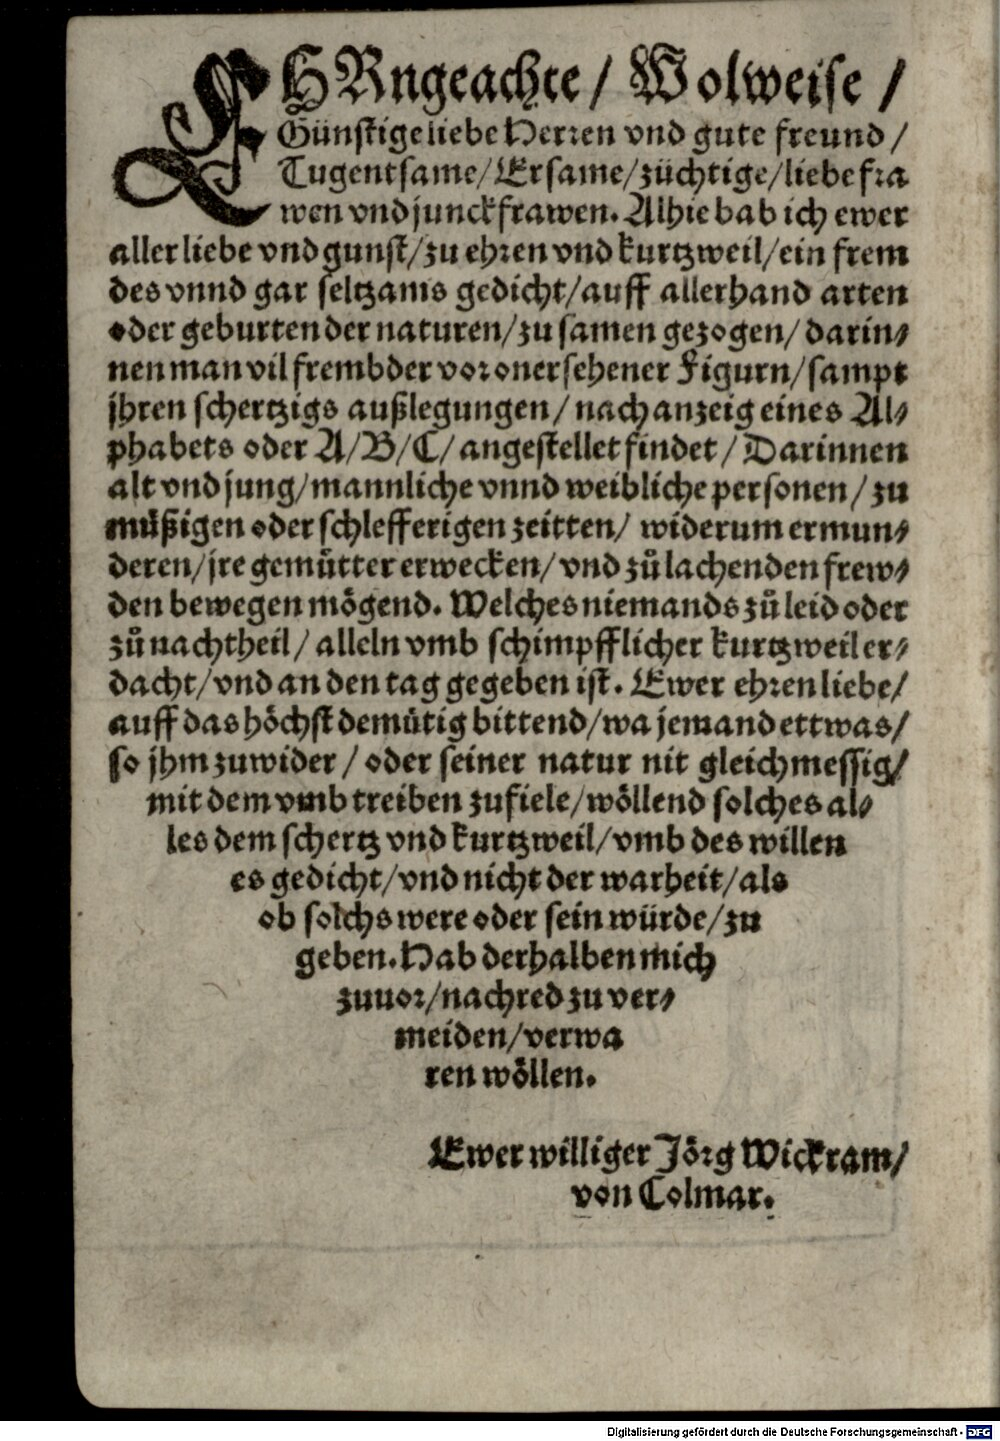 EHRngeachte / Wolweise /
Günstige liebe Herren vnd gute freund /
Tugentsame / Ersame / züchtige / liebe fra
wen vnd junckfrawen. Alhie hab ich ewer
aller liebe vnd gunst / zu ehren vnd kurtzweil / ein frem
des vnnd gar seltzams gedicht / auff allerhand arten
oder geburten der naturen / zu samen gezogen / darin⸗
nen man vil frembder vor onersehener Figurn / sampt
jhren schertzigs außlegungen / nach anzeig eines Al⸗
phabets oder A / B / C / angestellet findet / Darinnen
alt vnd jung / mannliche vnnd weibliche personen / zu
müßigen oder schlefferigen zeitten / widerum ermun⸗
deren / jre gemütter erwecken / vnd zů lachenden frew⸗
den bewegen mögend. Welches niemands zů leid oder
zů nachtheil / alleln vmb schimpfflicher kurtzweil er⸗
dacht / vnd an den tag gegeben ist. Ewer ehren liebe /
auff das höchst demütig bittend / wa jemand ettwas /
so jhm zuwider / oder seiner natur nit gleichmessig /
mit dem vmb treiben zufiele / wöllend solches al⸗
les dem schertz vnd kurtzweil / vmb des willen
es gedicht / vnd nicht der warheit / als
ob solchs were oder sein würde / zu
geben. Hab derhalben mich
zuuor / nachred zu ver⸗
meiden / verwa
ren wöllen.
Ewer williger Jörg Wickram /
von Colmar.
Digitalisierung gefördert durch die Deutsche Forschungsgemeinschaft - DFG